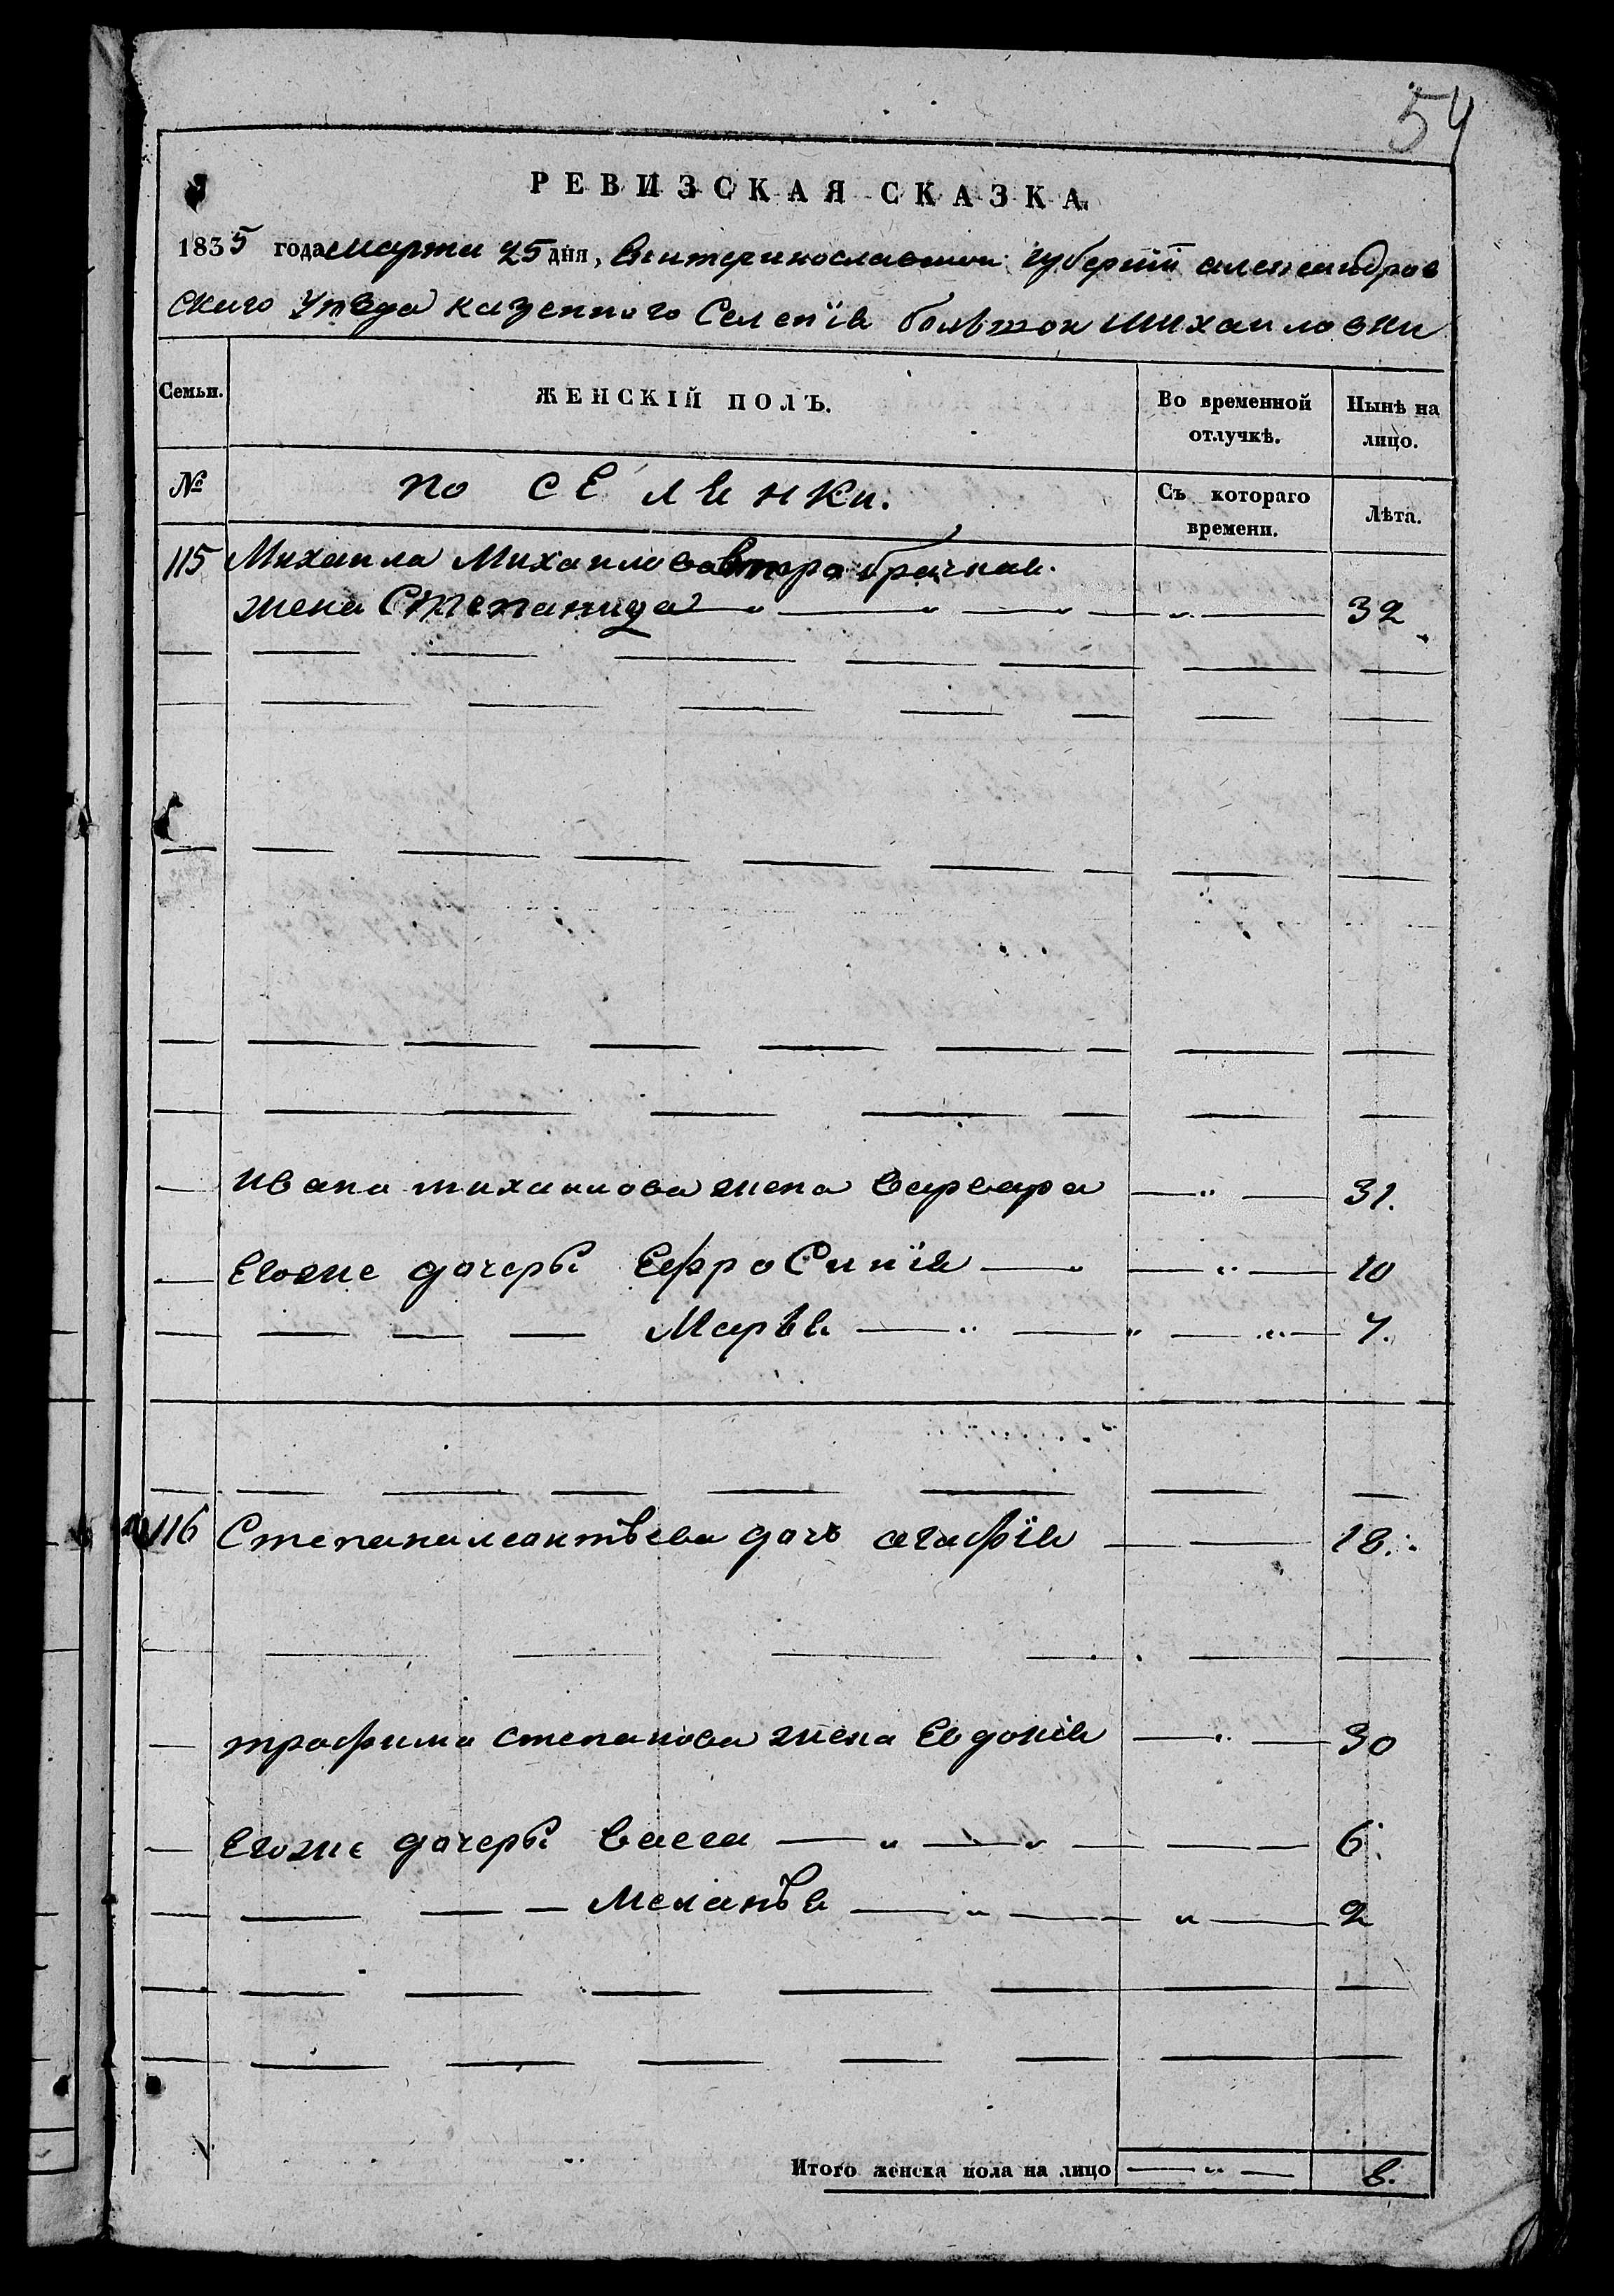 54
РЕВИЗСКАЯ СКАЗКА.
1835 года марта 25 дня, Екатеринославской губерніи александров
скаго уѣзда казеннаго Селенія большой михайловки
Семьи. ЖЕНСКІЙ ПОЛЪ. Во временной отлучкѣ. Нынѣ на лицо.
№ по СЕленки. Съ котораго времени. Лѣта.
115 Михаила Михаилова второбрачная
жена Степанида 32
ивана михаилова жена варвара 31.
Егоже дочеры Ефросинія 10
Марья 7.
116 Степана леонтьева дочь агафія 18.
трофима степанова жена Евдокія 30
Егоже дочеры васса 6.
Меланья 2
Итого женска пола на лицо 8.